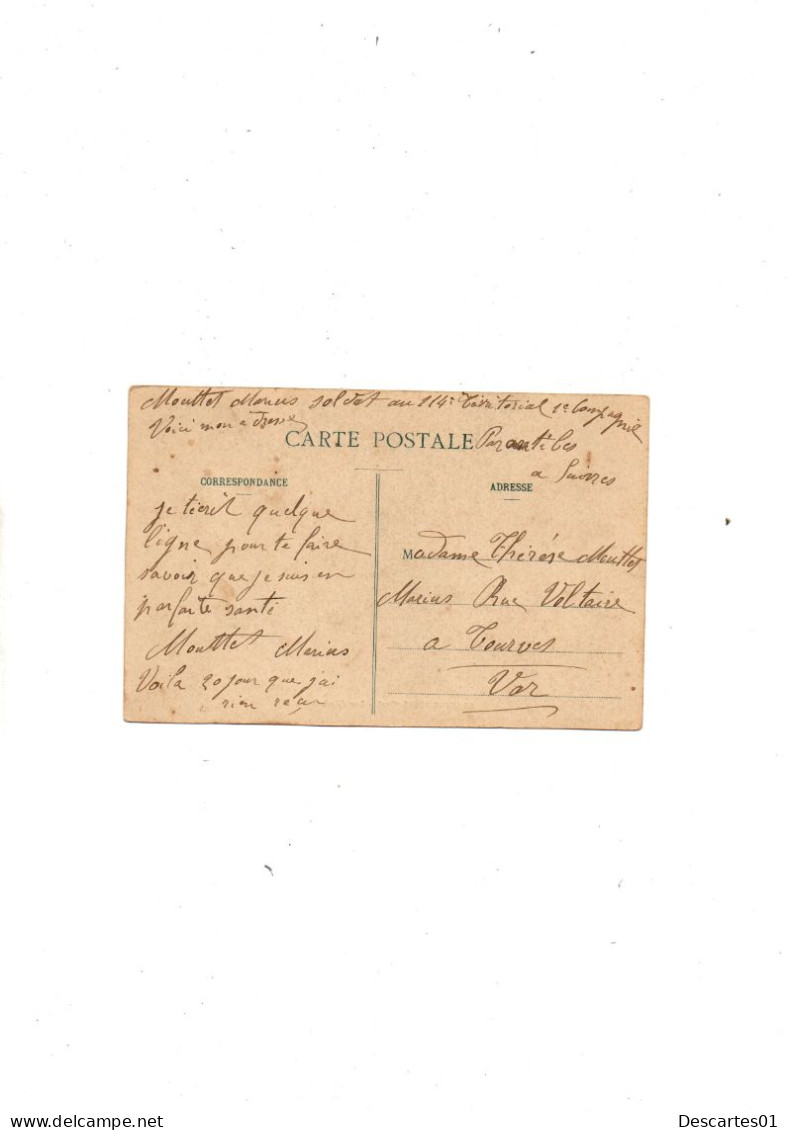 Mouttet Marius soldat au 114e Territorial 1e Compagnie
Voici mon adresse
Par antibes
a Suivres
CARTE POSTALE
CORRESPONDANCE
ADRESSE
je técrit quelque
ligne pour te faire
savoir que je suis en
parfaite santé
Mouttet Marius
Voila 20 jour que j'ai
rien reçu
Madame Thérése Mouttet
Marius Rue Voltaire
a Tourves
Var
Descartes01